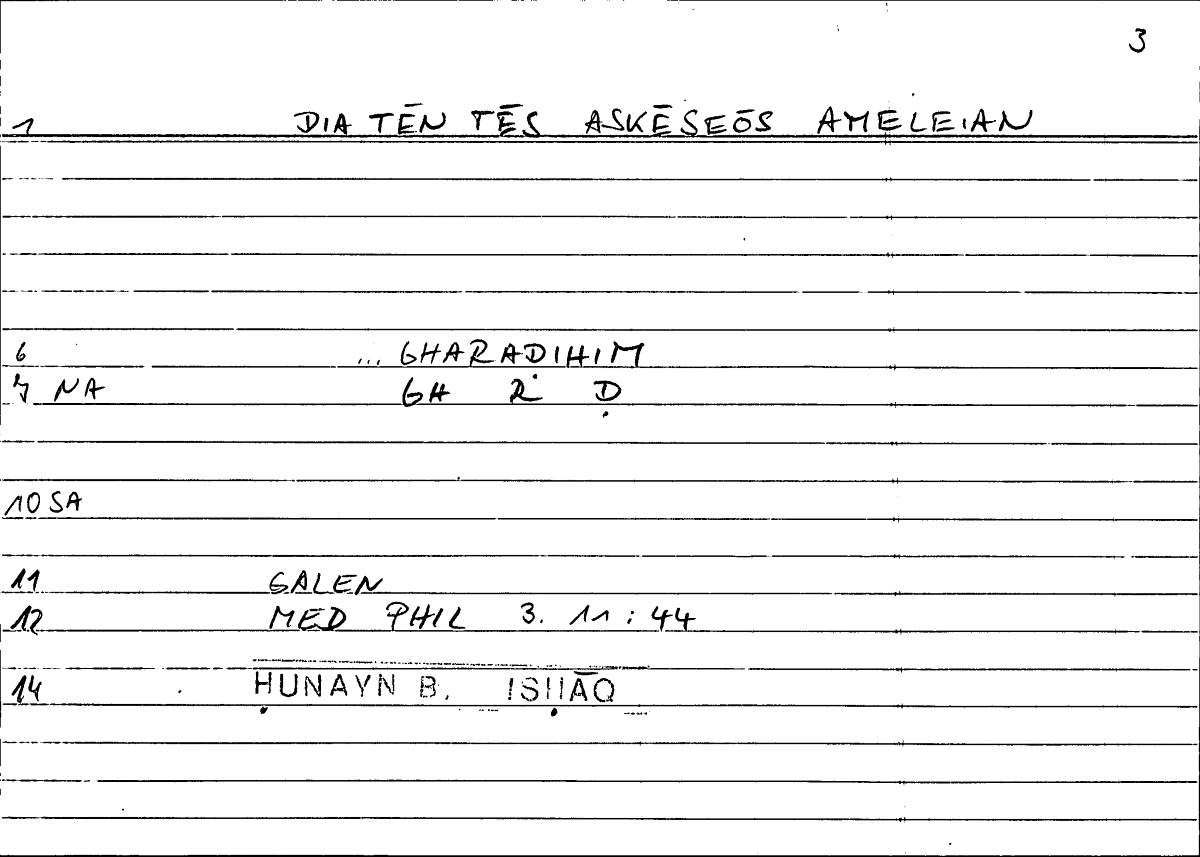 3
1 DIA TĒN TĒS ASKĒSEŌS AMELEIAN
6 ... GHARADIHIM
7 NA GH R Ḍ
10 SA
11 GALEN
12 MED PHIL 3. 11 : 44
14 ḤUNAYN B. ISḤĀQ